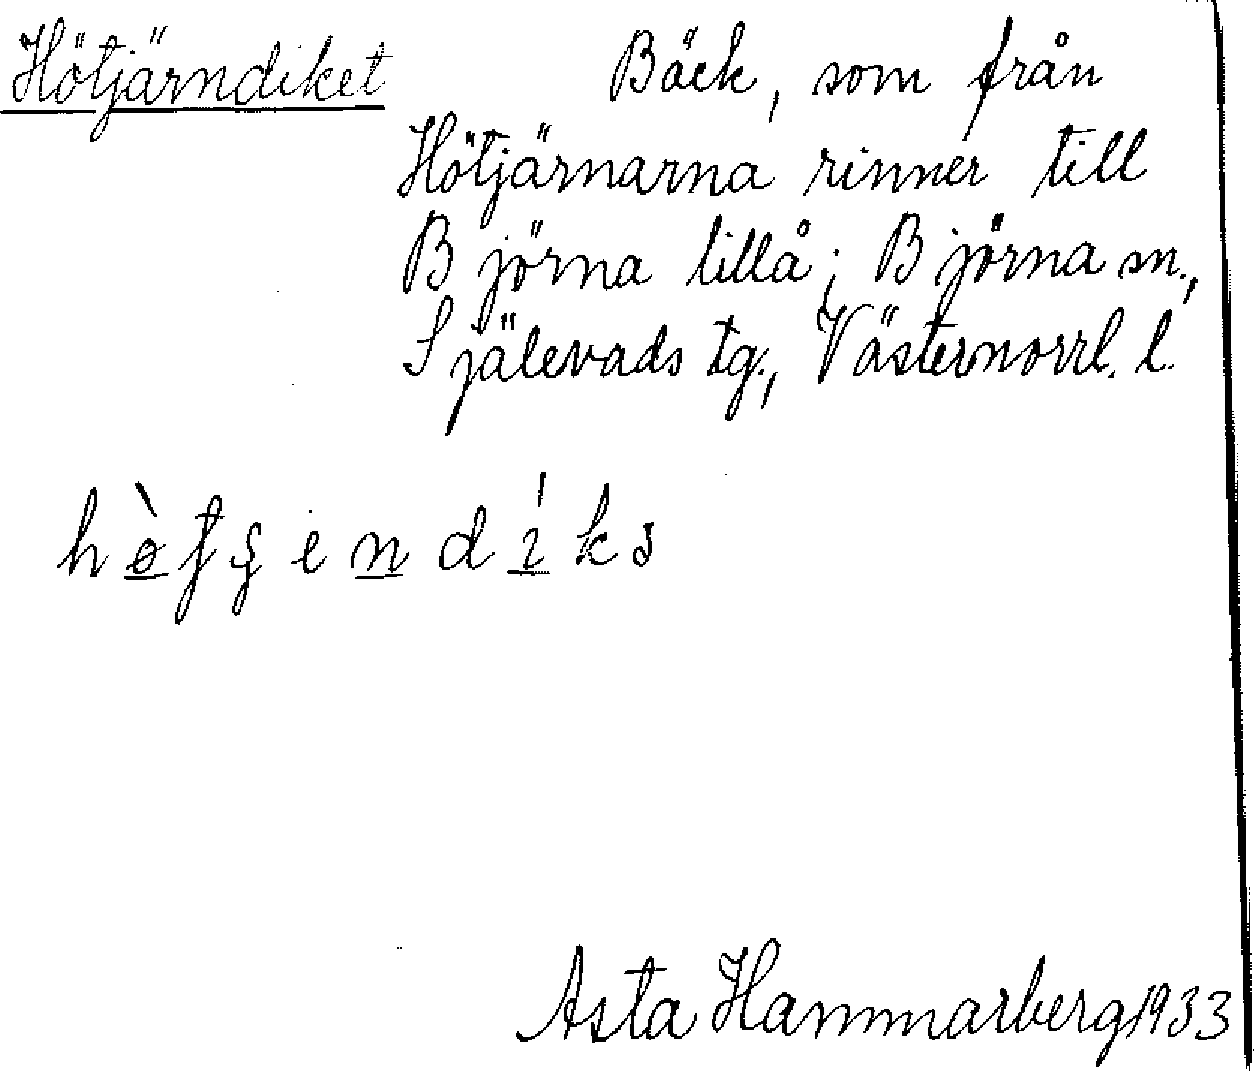 Hötjärndiket Bäck, som från
Hötjärnarna rinner till
Björna lillå; Björna sn.,
Själevads tg., Västernorrl. l.
Asta Hammarberg 1933